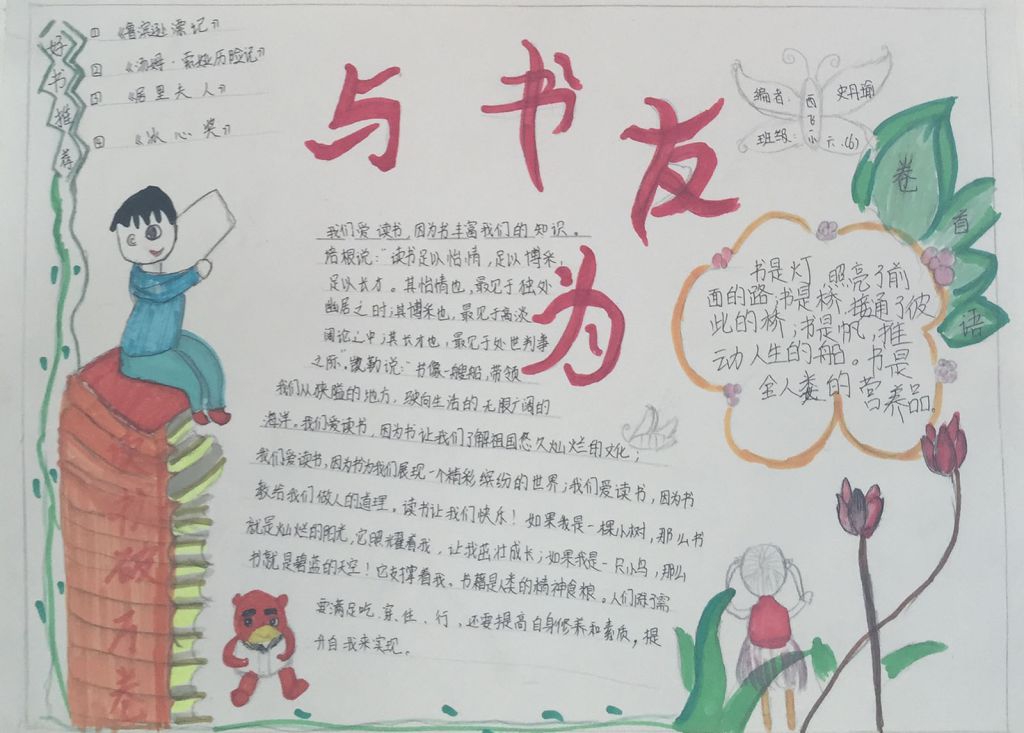 好书推荐
① 《鲁滨逊漂记》
② 《汤姆·索娅历险记》
③ 《居里夫人》
④ 《冰心奖》
与书友为
编者: 史丹瑜
班级: 六.(6)
西飞小
卷首语
书是灯,照亮了前
面的路;书是桥,接通了彼
此的桥;书是帆,推
动人生的船。书是
全人类的营养品。
我们爱读书,因为书丰富我们的知识。
培根说:“读书足以怡情,足以博采,
足以长才。其怡情也,最见于独处
幽居之时;其博采也,最见于高谈
阔论之中;其长才也,最见于处世判事
之际。”凯勒说:“书像一艘船,带领
我们从狭隘的地方,驶向生活的无限广阔的
海洋。我们爱读书,因为书让我们了解祖国悠久灿烂的文化;
我们爱读书,因为书为我们展现一个精彩缤纷的世界;我们爱读书,因为书
教给我们做人的道理。读书让我们快乐!如果我是一棵小树,那么书
就是灿烂的阳光,它照耀着我,让我茁壮成长;如果我是一只小鸟,那么
书就是碧蓝的天空!它支撑着我。书籍是人类的精神食粮。人们除了需
要满足吃、穿、住、行,还要提高自身修养和素质,提
升自我来实现。
破万卷